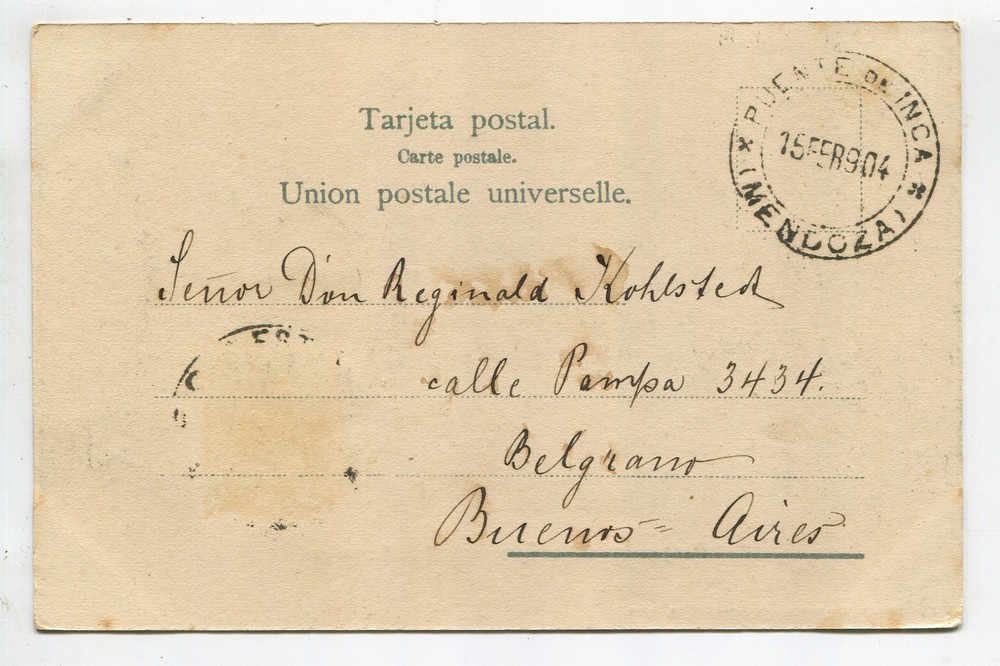 Tarjeta postal.
Carte postale.
Union postale universelle.
PUENTE DE INCA
15 FEB 904
(MENDOZA)
Señor Don Reginald Kohlstedt
calle Pampa 3434.
Belgrano
Buenos=Aires